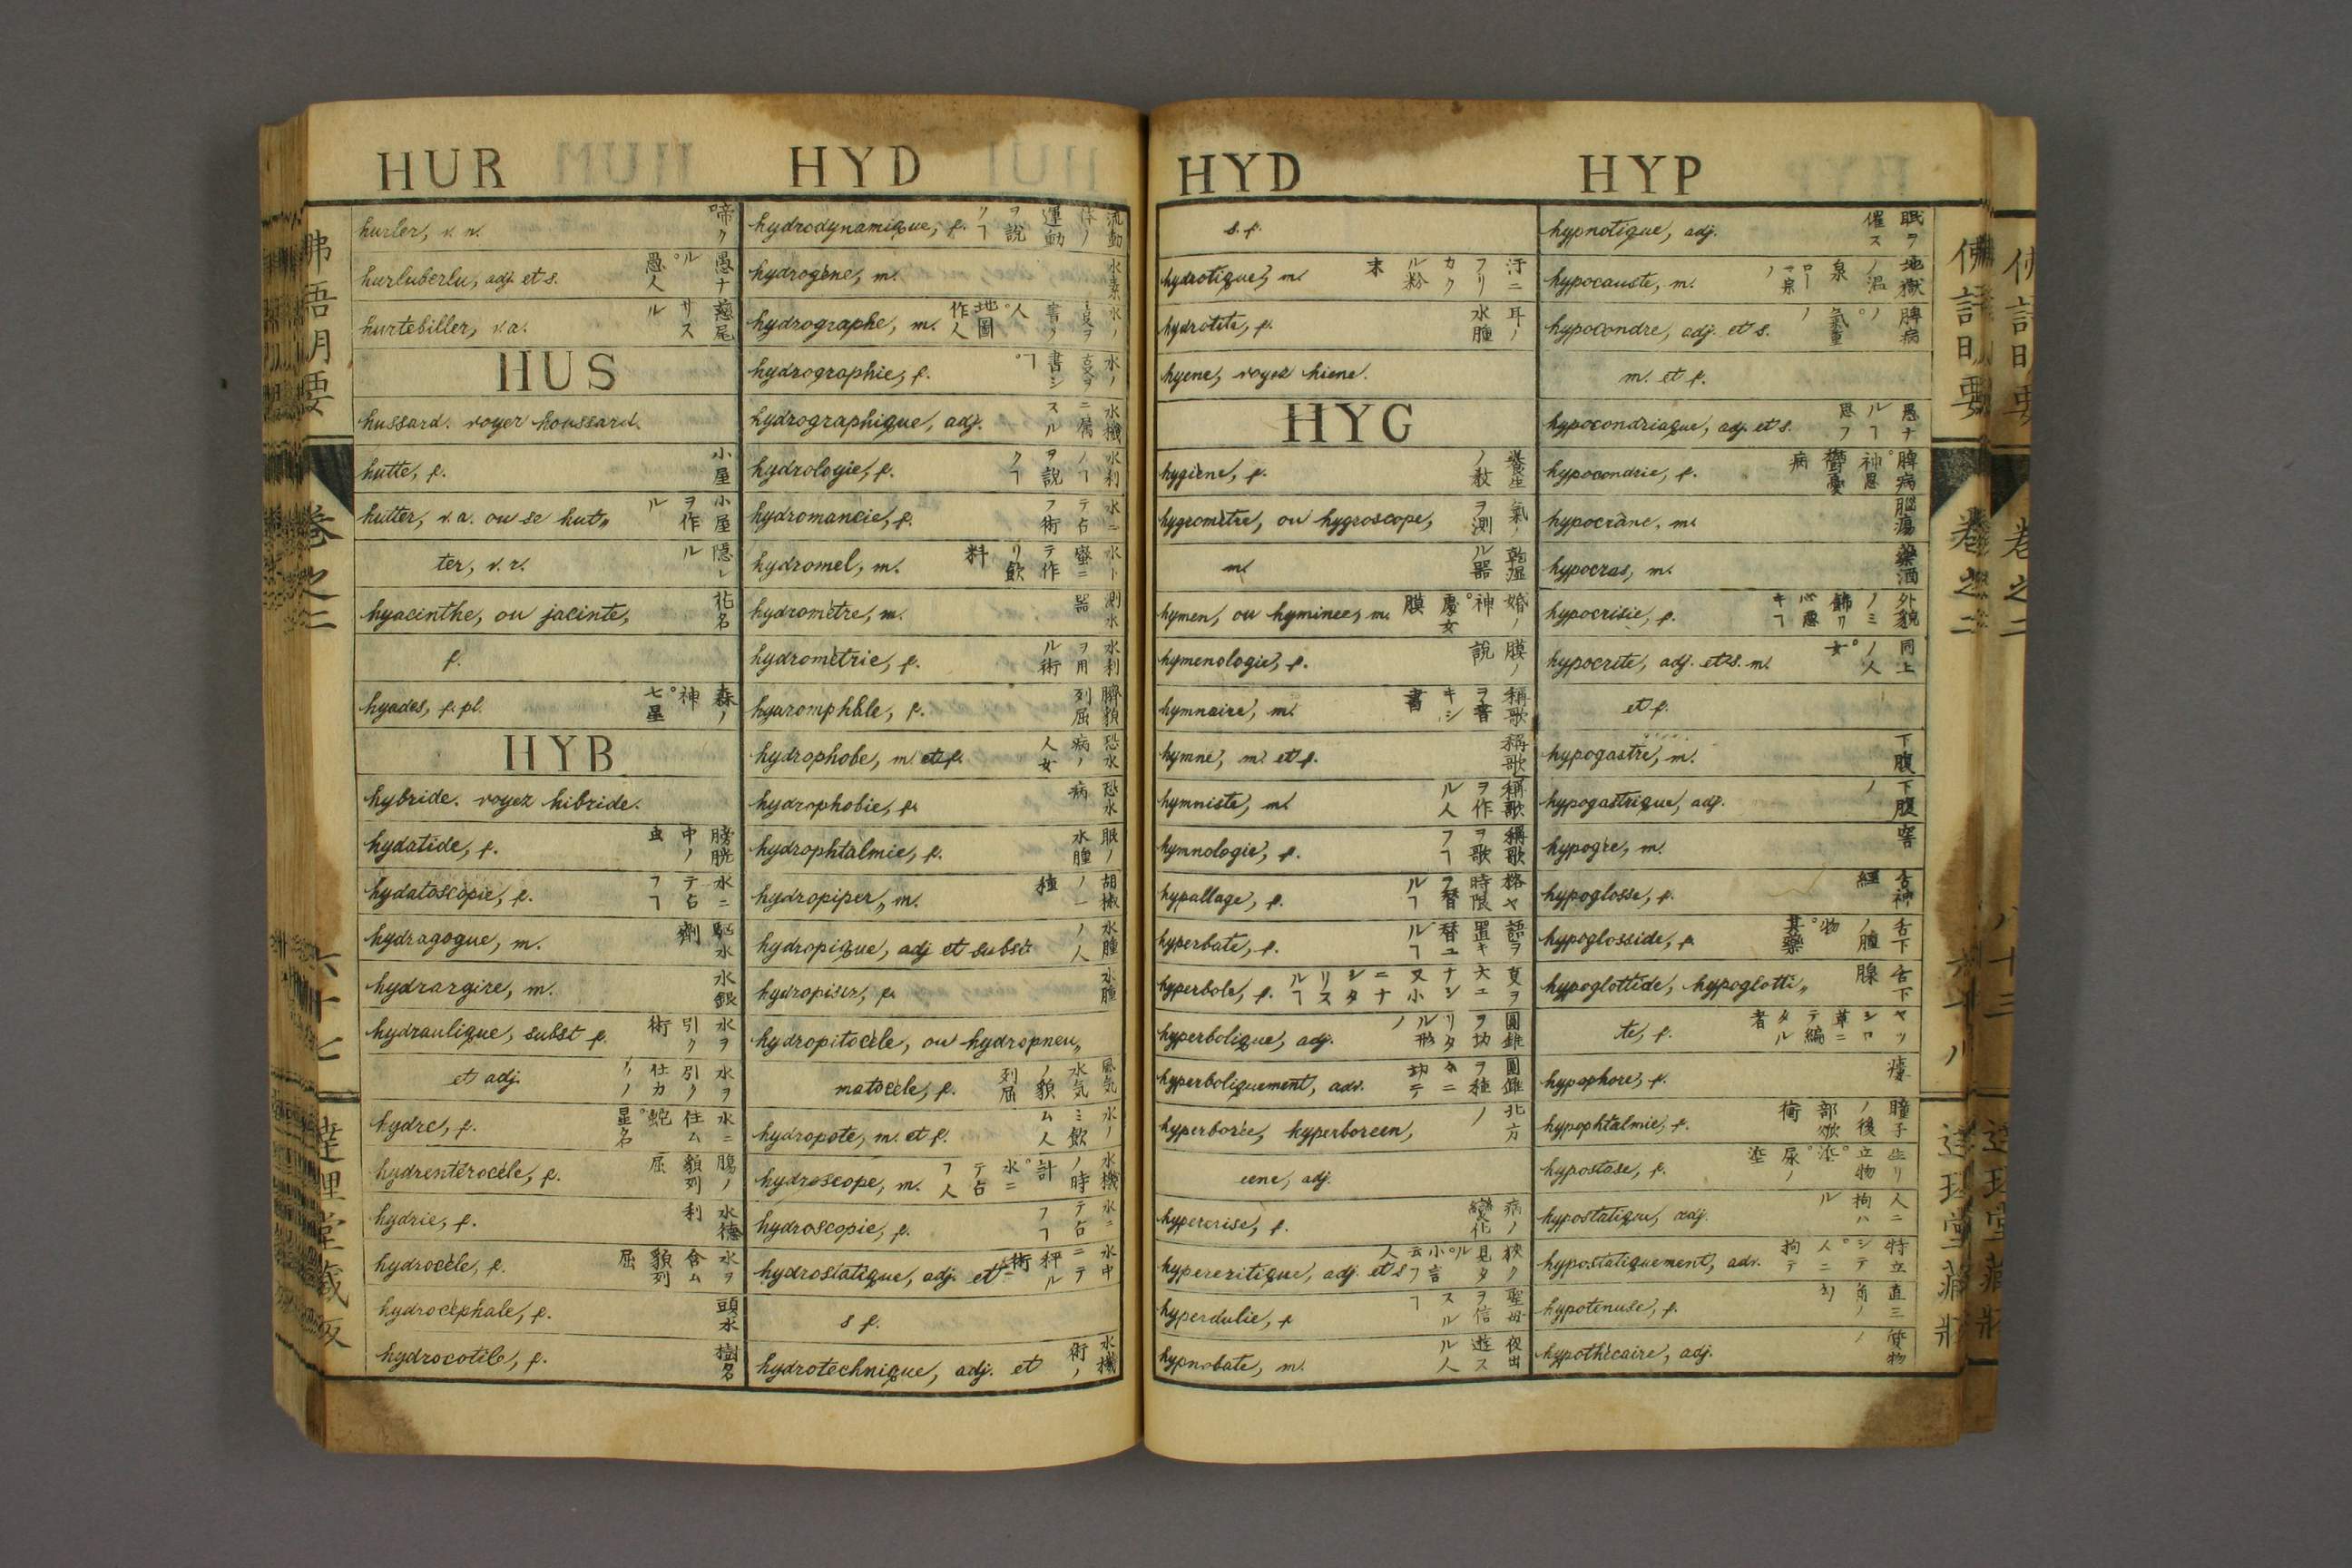 HUR
HYD
hurler, v. n. 啼ク
hurluberlu, adj. et s. 愚ナル。愚人
hurtebiller, v. a.
HUS
hussard. voyez houssard.
hutte, f. 小屋
hutter, v. a. ou se hut„ 小屋ヲ作ル
ter, v. r. 隠レル
hyacinthe, ou jacinte, 花名
f.
hyades, f. pl. 森ノ神。七星
HYB
hybride. voyez hibride.
hydatide, f. 膀胱中ノ虫
hydatoscopie, f. 水ニテ占フヿ
hydragogue, m. 駆水劑
hydrargire, m. 水銀
hydraulique, subst f. 水ヲ引ク術
et adj. 水ヲ引ク仕カケノ
hydre, f. 水ニ住ム蛇。星名
hydrentérocèle, f. 腸ノ貌列屈
hydrie, f. 水德利
hydrocèle, f. 水ヲ含ム貌列屈
hydrocéphale, f. 頭水
hydrocotile, f. 樹名
hydrodynamique, f. 流動体ノ運動ヲ説クヿ
hydrogène, m. 水素
hydrographe, m. 水ノ亥ヲ書ク人。地圖作人
hydrographie, f. 水ノ亥ヲ書シヿ。
hydrographique, adj. 水機ニ属スル
hydrologie, f. 水利ノヿヲ説クヿ
hydromancie, f. 水ニテ占フ術
hydromel, m. 水ト蜜ニテ作リ飲料
hydromètre, m. 測水器
hydrométrie, f. 水利ヲ用ル術
hydromphale, f. 臍貌列屈
hydrophobe, m. et f. 恐水病ノ人女
hydrophobie, f. 恐水病
hydrophtalmie, f. 眼ノ水腫
hydropiper, m. 胡椒ノ一種
hydropique, adj et subst. 水腫ノ人
hydropisie, f. 水腫
hydropitocèle, ou hydropneu„
matocèle, f. 風気水気ノ貌列屈
hydropote, m. et f. 水ノミ飲ム人
hydroscope, m. 水機ノ時計。水ニテ占フ人
hydroscopie, f. 水ニテ占フヿ
hydrostatique, adj. et 水中ニテ秤ル術
s f.
hydrotechnique, adj. et 水機術ノ
HYD
HYP
s. f.
hydrotique, m. 汗ニフリカクル粉末
hydrotite, f. 耳ノ水腫
hyene, voyez hiene.
HYG
hygiène, f. 養生ノ教
hygromètre, ou hygroscope, 氣ノヲ測
m. 乾湿ル器
hymen, ou hyminee, m. 婚ノ神。處女膜
hymenologie, f. 膜ノ説
hymnaire, m. 稱歌ヲ書キシ書
hymne, m. et f. 稱歌
hymniste, m. 稱歌ヲ作ル人
hymnologie, f. 稱歌ヲ歌フヿ
hypallage, f. 格ヤ時限ヲ替ルヿ
hyperbate, f. 語ヲ置キ替ユルヿ
hyperbole, f. 亥ヲ大ニナシ又小ニナシタリスルヿ
hyperbolique, adj. 圓錐ヲ切リタルノ形
hyperboliquement, adv.
hyperborée, hyperboreen, 北方ノ
eene, adj.
hypercrise, f. 病ノ變化
hypercritique, adj. et s. 狹ク見タル。小言云フ人
hyperdulie, f 聖母ヲ信スルヿ
hypnobate, m. 夜出遊スル人
hypnotique, adj. 眠ヲ催ス
hypocauste, m.
hypocondre, adj. et s.
m. et f.
hypocondriaque, adj. et s. 愚ナルヿ思フ
hypocondrie, f. 脾病。神思鬱憂病
hypocràne, m. 腦瘍
hypocras, m. 藥酒
hypocrisie, f. 外貌ノミ飾リ心悪キヿ
hypocrite, adj. et s. m. 同上ノ人。女
et f.
hypogastre, m. 下腹
hypogastrique, adj. 下腹ノ
hypogée, m. 窖
hypoglosse, f. 舌神經
hypoglosside, f. 舌下ノ腫物。其藥
hypoglottide, hypoglotti„ 舌下腺
te, f.
hypophore, f.
hypophtalmie, f.
hypostase, f.
hypostatique, adj. 人ニ拘ハル
hypostatiquement, adv. 特立シテ。人ニ拘テ
hypotenuse, f. 直三角ノ
hypothécaire, adj. 質物ノ
卷之二
六十七
達理堂藏版
佛語明要
卷之二
六十八
達理堂藏